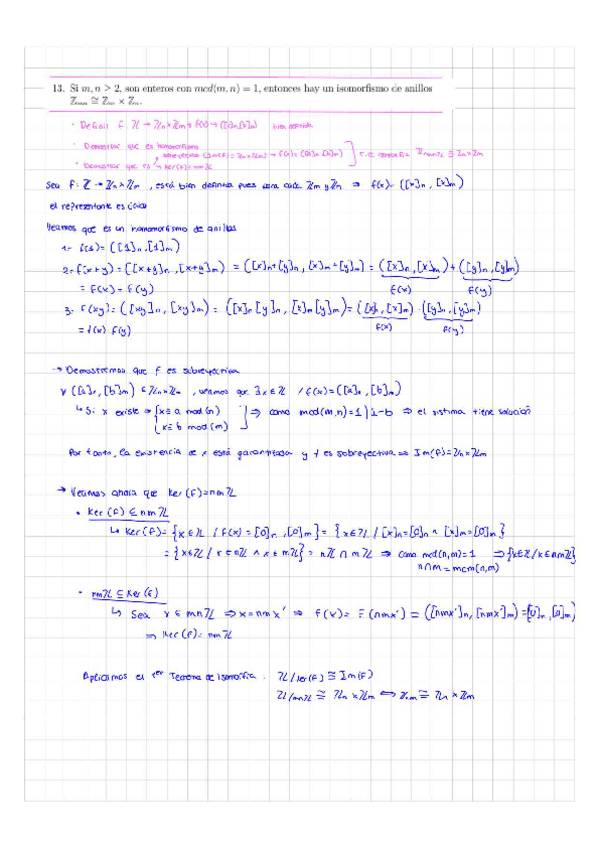 13. Si m, n ≥ 2, son enteros con mcd(m, n) = 1, entonces hay un isomorfismo de anillos
ℤmn ≅ ℤm × ℤn.
· Definir f: ℤ → ℤn×ℤm, f(x) → ([x]n,[x]m) bien definida
· Demostrar que es homomorfismo
sobreyectiva (Im(f) = ℤn×ℤm)
· Demostrar que es Ker(f) = nmℤ
ℤnmℤ ≅ ℤn×ℤm
Sea f: ℤ → ℤn×ℤm, está bien definida pues para cada ℤm y ℤn ⇒ f(x) = ([x]n, [x]m)
el representante es único
Veamos que es un homomorfismo de anillos
1- f(1) = ([1]n, [1]m)
2- f(x+y) = ([x+y]n, [x+y]m) = ([x]n+[y]n, [x]m+[y]m) = ([x]n, [x]m) + ([y]n, [y]m)
f(x) f(y)
= f(x) - f(y)
3- f(xy) = ([xy]n, [xy]m) = ([x]n[y]n, [x]m[y]m) = ([x]n, [x]m) · ([y]n, [y]m)
f(x) f(y)
= f(x) · f(y)
→ Demostremos que f es sobreyectiva
∀ ([a]n, [b]m) ∈ ℤn×ℤm, veamos que ∃x∈ℤ / f(x) = ([a]n, [b]m)
↳ Si x existe ⇒ {x ≡ a mod(n)
x ≡ b mod(m)} ⇒ como mcd(m,n)=1 | a-b ⇒ el sistema tiene solución
Por tanto, la existencia de x está garantizada y f es sobreyectiva ⇒ Im(f) = ℤn×ℤm
→ Veamos ahora que Ker(f) = nmℤ
• Ker(f) ⊆ nmℤ
↳ Ker(f) = {x∈ℤ / f(x) = [0]n, [0]m} = {x∈ℤ / [x]n=[0]n ∧ [x]m=[0]m}
= {x∈ℤ / x∈nℤ ∧ x∈mℤ} = nℤ ∩ mℤ ⇒ como mcd(n,m)=1 ⇒ {x∈ℤ / x∈nmℤ}
n∩m = mcm(n,m)
• nmℤ ⊆ Ker(f)
↳ Sea x ∈ mnℤ ⇒ x = nmx' ⇒ f(x) = f(nmx') = ([nmx']n, [nmx']m) = [0]n, [0]m)
⇒ Ker(f) = nmℤ
Aplicamos el 1er Teorema de Isomorfía: ℤ/Ker(f) ≅ Im(f)
ℤ/mnℤ ≅ ℤn×ℤm ⇔ ℤnm ≅ ℤn×ℤm